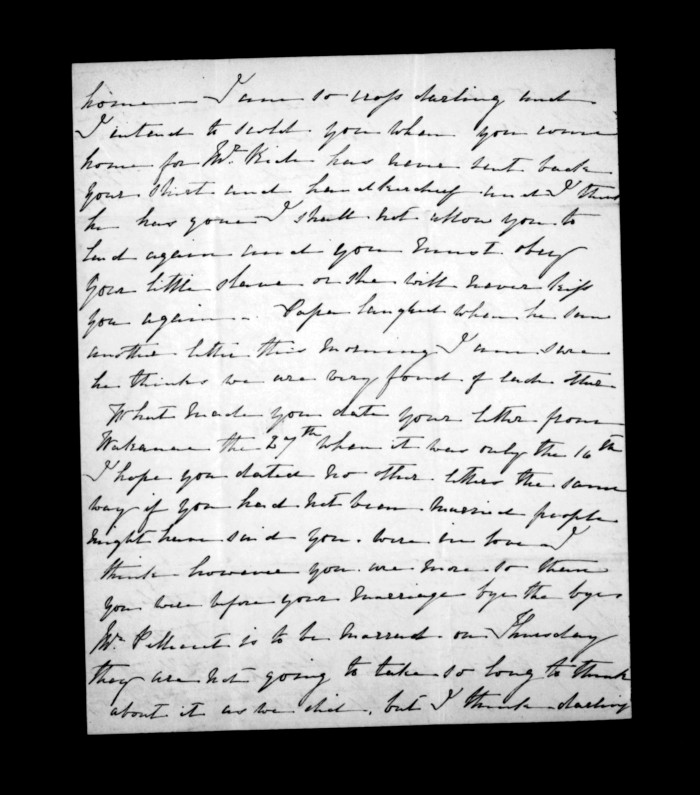 home — I am so cross darling and
I intend to scold you when you come
home for Mr. has never sent back
your shirt and handkerchief and I think
he has gone I shall not allow you to
lend again and you must obey
your little slave or she will never kiss
you again. Papa laughed when he saw
another letter this morning I am sure
he thinks we are very fond of each other
What made you date your letter from
the 27th when it was only the 16th
I hope you dated no other letters the same
way if you had not been married people
might have said you were in love I
think however you are more so than
you were before your marriage bye the bye
Mr. is to be married on Thursday
they are not going to take so long to think
about it as we did, but I think darling